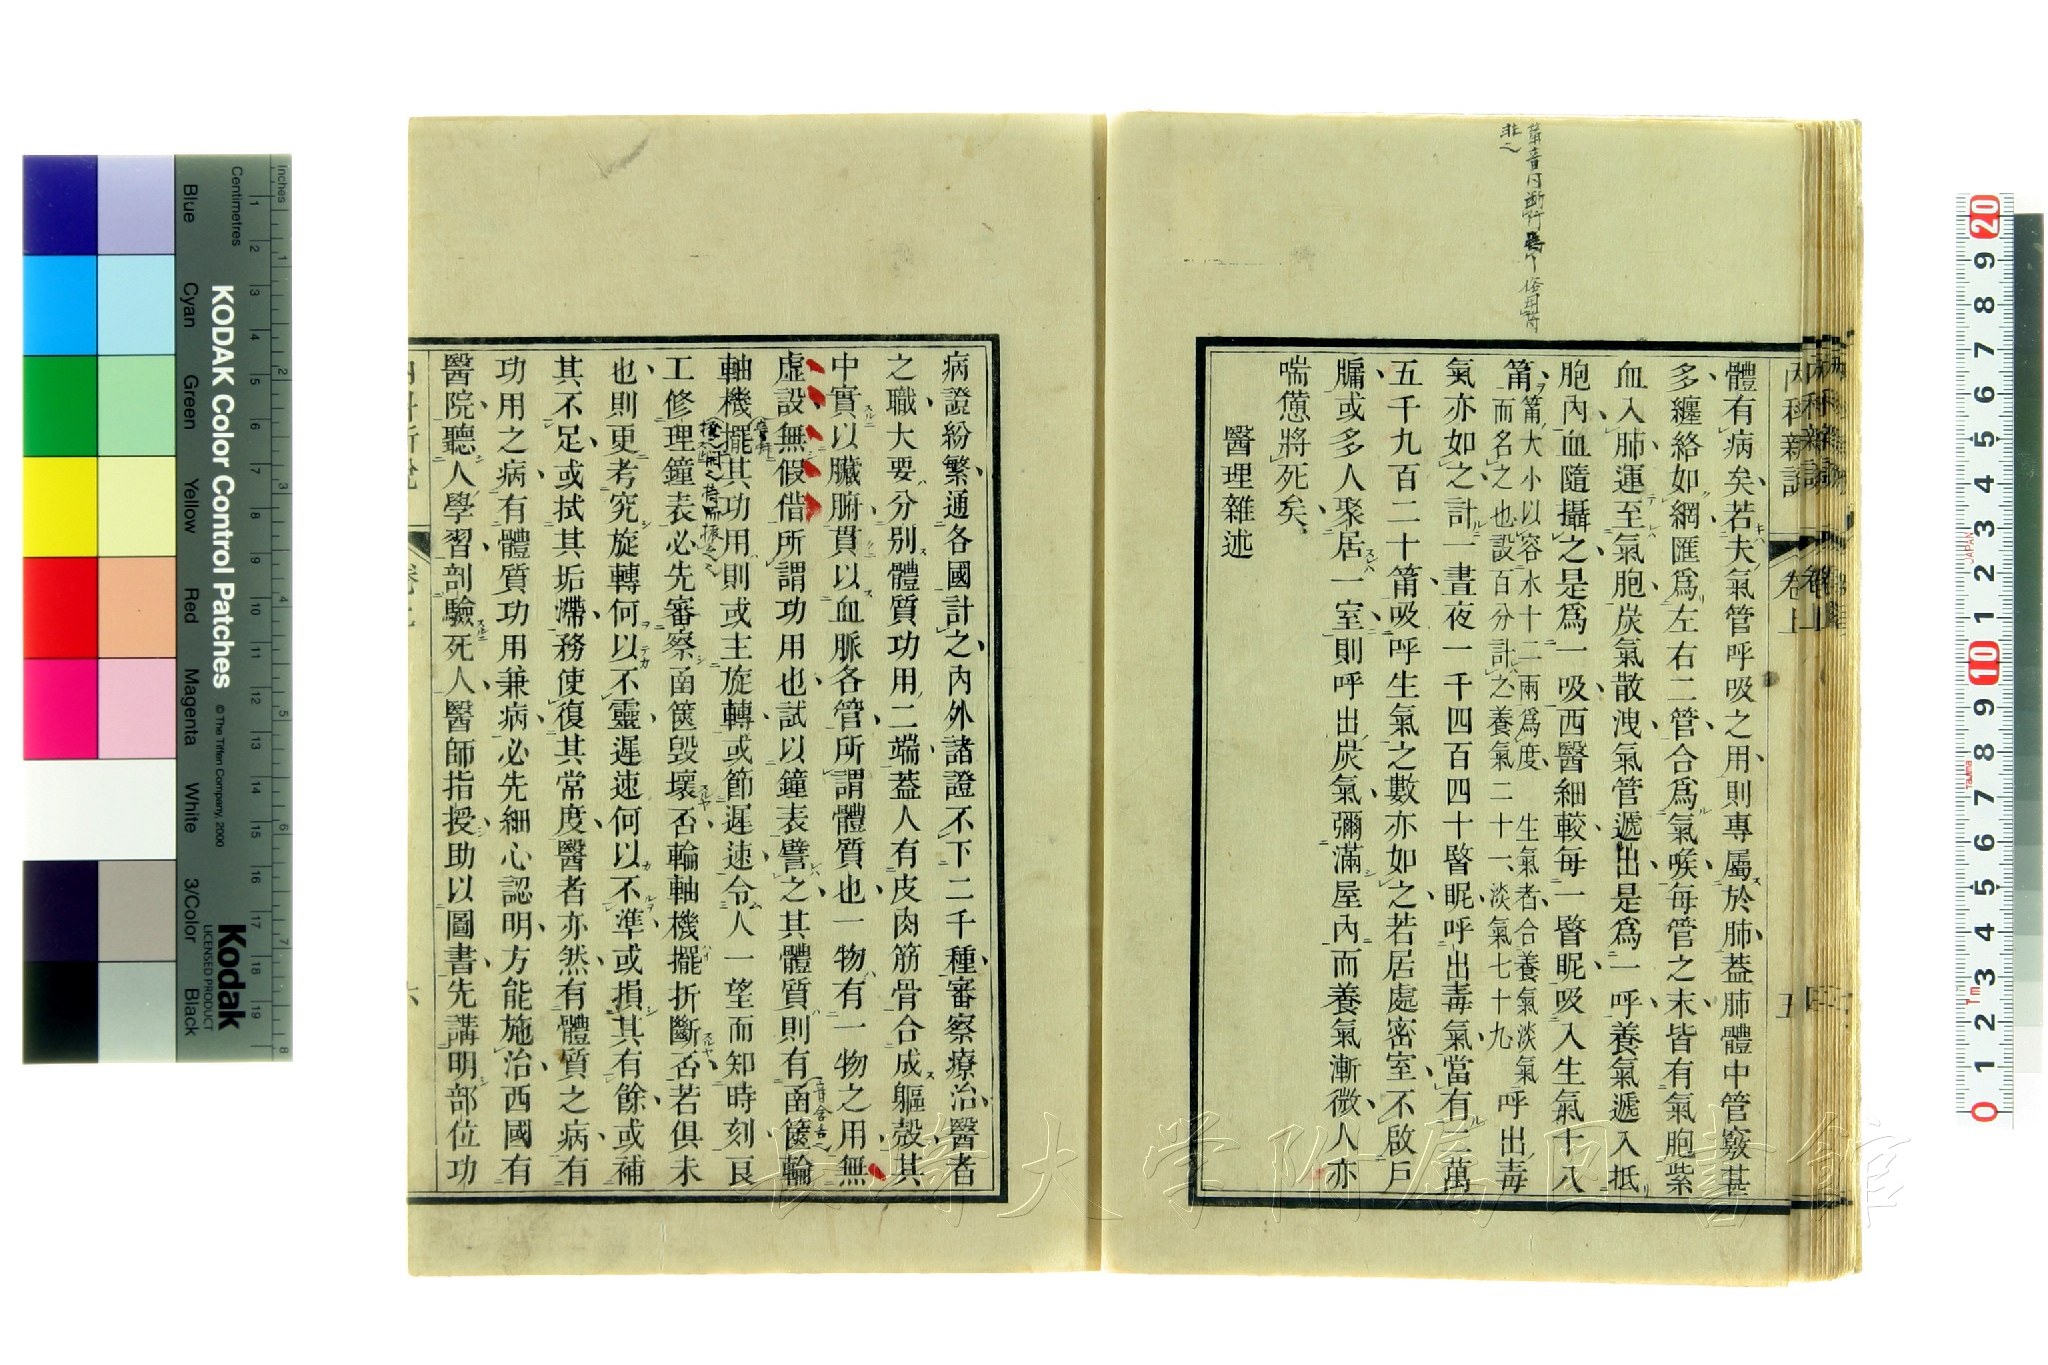 內科新說
卷上
五
體有病矣若夫氣管呼吸之用則專屬於肺葢肺體中管竅甚
多纏絡如網匯爲左右二管合爲氣喉每管之末皆有氣胞紫
血入肺運至氣胞炭氣散洩氣管遞出是爲一呼養氣遞入抵
胞內血隨攝之是爲一吸西醫細較每一瞖眤吸入生氣十八
筩筩大小以容水十二兩爲度生氣者合養氣淡氣呼出毒
而名之也設百分計之養氣二十一淡氣七十九
氣亦如之計一晝夜一千四百四十瞖眤呼出毒氣當有二萬
五千九百二十筩吸呼生氣之數亦如之若居處密室不啟戶
牖或多人聚居一室則呼出炭氣彌滿屋內而養氣漸微人亦
喘憊將死矣
醫理雜述
病證紛繁通各國計之內外諸證不下二千種審察療治醫者
之職大要分別體質功用二端葢人有皮肉筋骨合成軀殼其
中實以臟腑貫以血脈各管所謂體質也一物有一物之用無
虛設無假借所謂功用也試以鐘表譬之其體質則有函篋輪
軸機擺其功用則或主旋轉或節遲速令人一望而知時刻良
工修理鐘表必先審察函篋毀壞否輪軸機擺折斷否若俱未
也則更考究旋轉何以不靈遲速何以不準或損其有餘或補
其不足或拭其垢滯務使復其常度醫者亦然有體質之病有
功用之病有體質功用兼病必先細心認明方能施治西國有
醫院聽人學習剖驗死人醫師指授助以圖書先講明部位功
六
KODAK Color Control Patches
© The Tiffen Company, 2000
Kodak
LICENSED PRODUCT
Blue
Cyan
Green
Yellow
Red
Magenta
White
3/Color
Black
Centimetres
Inches
長崎大学附属図書館